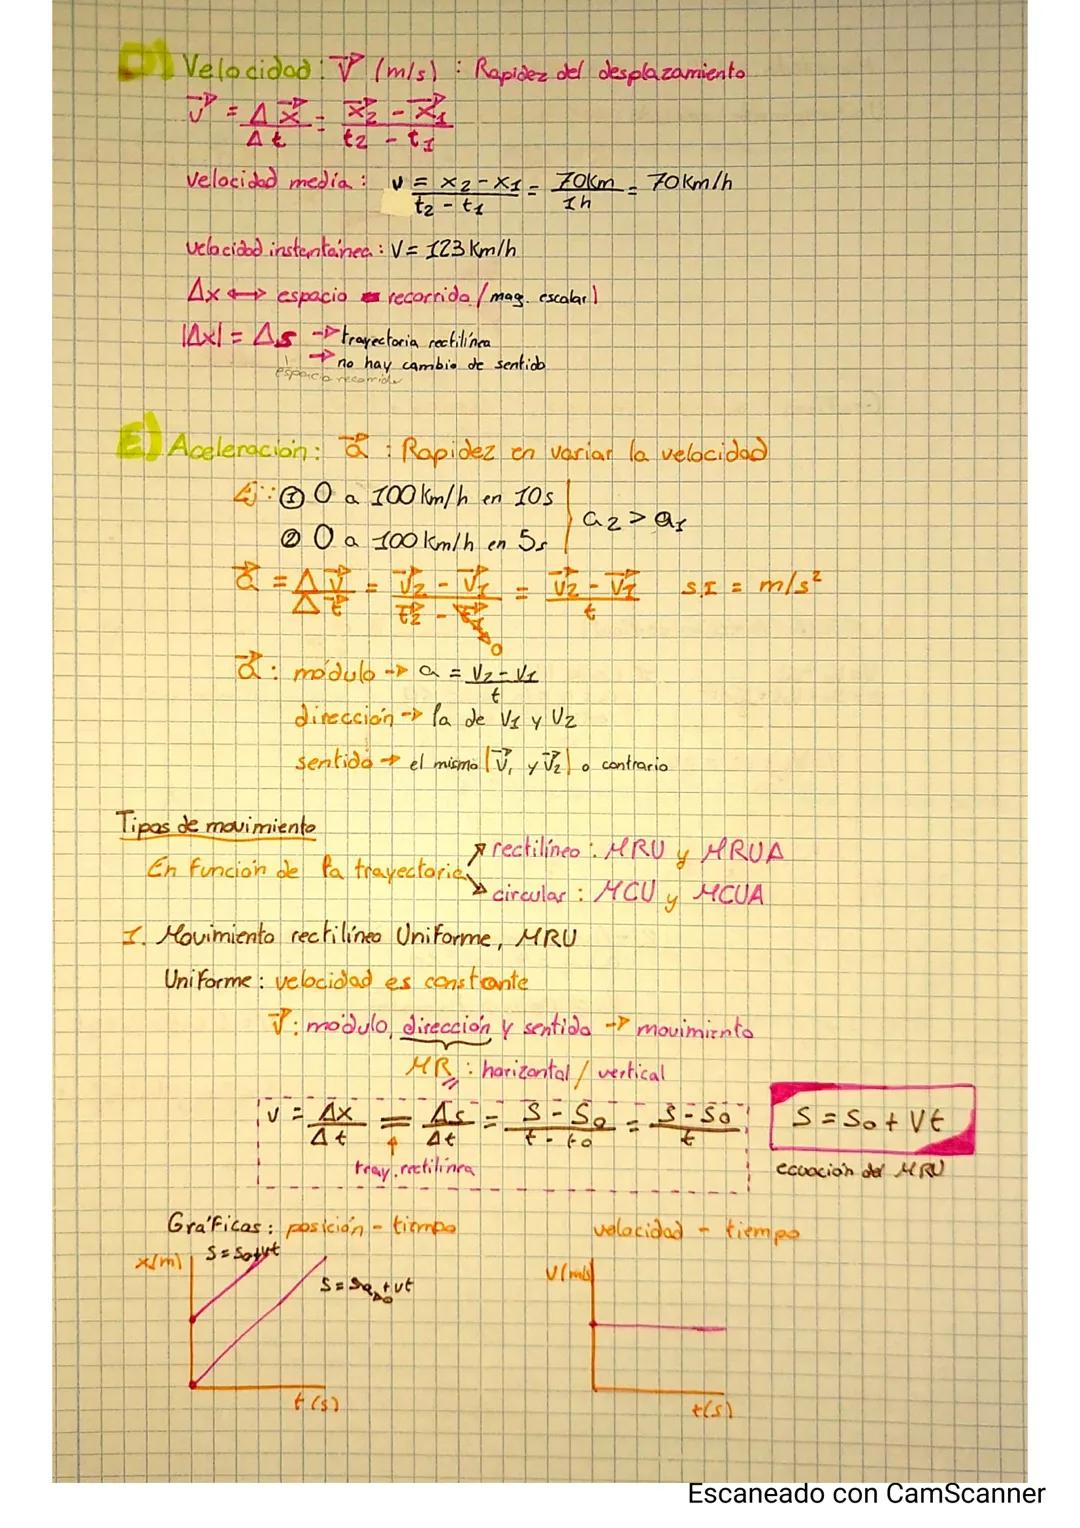 D) Velocidad: V⃗ (m/s) : Rapidez del desplazamiento
v⃗ = Δx⃗/Δt = (x⃗2 - x⃗1)/(t2 - t1)
velocidad media: v = (x2 - x1)/(t2 - t1) = 70Km/1h = 70Km/h
velocidad instantánea: V = 123 Km/h
Δx ↔ espacio recorrido (mag. escalar)
|Δx| = Δs → trayectoria rectilínea
→ no hay cambio de sentido
espacio recorrido
E) Aceleración: a⃗ : Rapidez en variar la velocidad
Ej: ① 0 a 100 Km/h en 10s
② 0 a 100 Km/h en 5s
a2 > a1
a⃗ = Δv⃗/Δt⃗ = (v⃗2 - v⃗1)/(t⃗2 - t⃗1) = (v⃗2 - v⃗1)/t S.I = m/s²
0
a⃗: módulo → a = (V2 - V1)/t
dirección → la de V1 y V2
sentido → el mismo (v⃗1 y v⃗2) o contrario
Tipos de movimiento
En función de la trayectoria
rectilíneo: MRU y MRUA
circular: MCU y MCUA
1. Movimiento rectilíneo Uniforme, MRU
Uniforme: velocidad es constante
v⃗: módulo, dirección y sentido → movimiento
MR: horizontal / vertical
v = Δx/Δt = Δs/Δt = (S - S0)/(t - t0) = (S - S0)/t
S = S0 + Vt
tray. rectilínea
ecuación del MRU
Gráficas: posición - tiempo
velocidad - tiempo
x(m)
S = S0 + vt
S = S0 + vt
0
V(m/s)
t(s)
t(s)
Escaneado con CamScanner